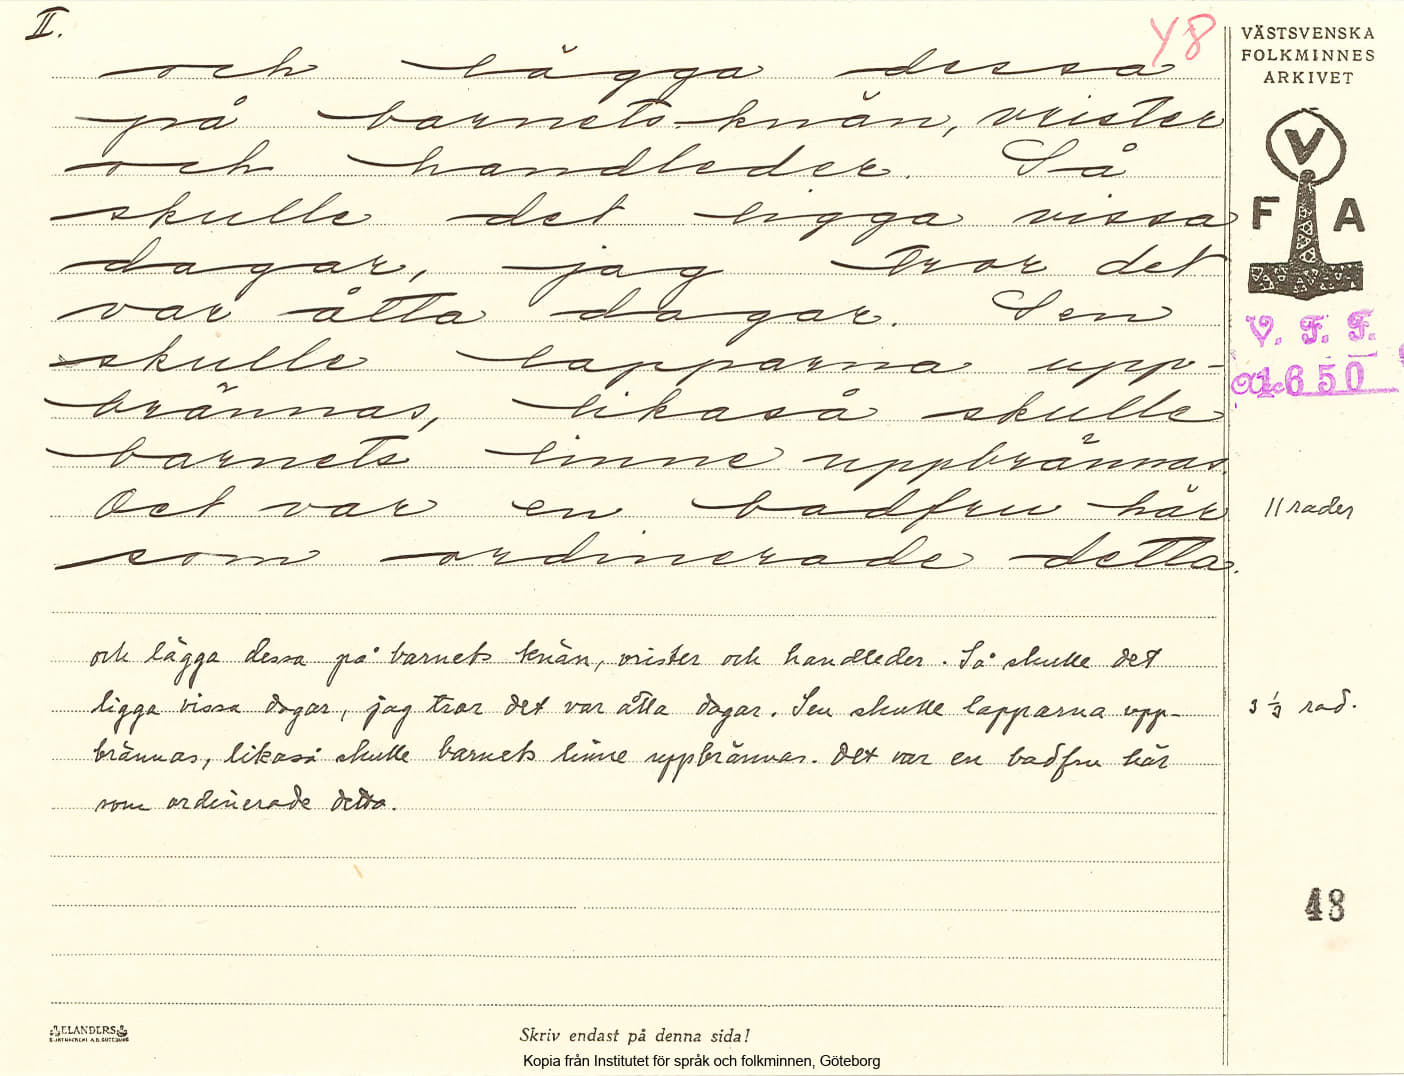 II.
48
och lägga dessa
på barnets knän, vrister
och handleder. Så
skulle det ligga vissa
dagar, jag tror det
var åtta dagar. Sen
skulle lapparna upp-
brännas, likaså skulle
barnets linne uppbrännas.
Det var en badfru här
som ordinerade detta.
och lägga dessa på barnets knän, vrister och handleder. Så skulle det
ligga vissa dagar, jag tror det var åtta dagar. Sen skulle lapparna upp-
brännas, likaså skulle barnets linne uppbrännas. Det var en badfru här
som ordinerade detta.
VÄSTSVENSKA
FOLKMINNES
ARKIVET
V
F A
V. F. F.
1650
11 rader
3 1/3 rad.
48
ELANDERS
Skriv endast på denna sida!
Kopia från Institutet för språk och folkminnen, Göteborg